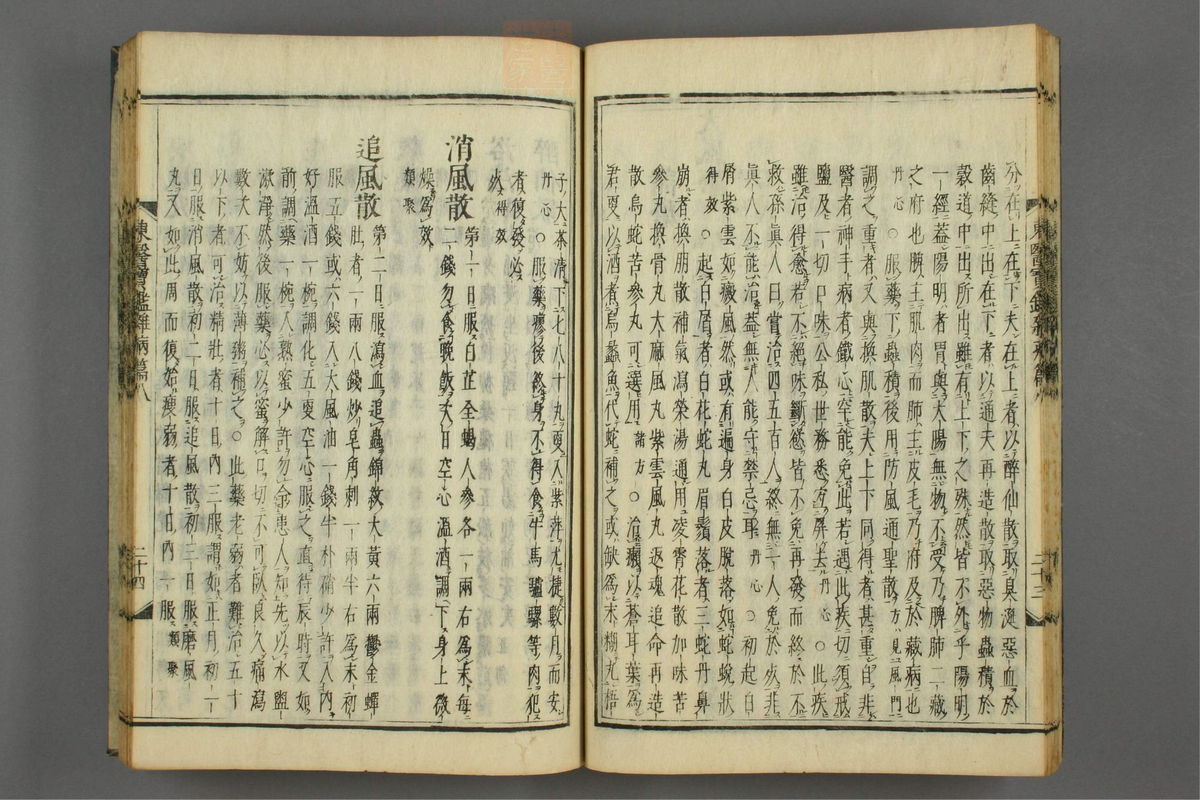 分在上在下夫在上者以醉仙散取臭涎惡血於
齒縫中出在下者以通天再造散取惡物蟲積於
穀道中出所出雖有上下之殊然皆不外乎陽明
一經盖陽明者胃與大腸無物不受乃脾肺二藏
之府也脾主肌肉而肺主皮毛乃府及於藏病也
丹心○服藥下蟲積後用防風通聖散方見風門
調之重者又與換肌散夫上下同得者甚重自非
醫者神手病者鐵心罕能免此若遇此疾切須戒
鹽及一切口味公私世務悉宜屏去丹心○此疾
雖治得愈若不絶味斷慾皆不免再發而終於不
救孫眞人曰嘗治四五百人終無一人免於死非
眞人不能治盖無人能守禁忌耳丹心○初起白
屑紫雲如癜風然或有遍身白皮脫落如蛇蛻狀
得效○起白屑者白花蛇丸眉鬚落者三蛇丹鼻
崩者換肌散補氣瀉榮湯通用凌霄花散加味苦
參丸換骨丸大麻風丸紫雲風丸返魂追命再造
散烏蛇苦參丸可選用諸方○治癩以蒼耳葉爲
君更以酒煮烏蠡魚代蛇補之或缺爲末糊丸梧
東醫寶鑑雜病篇八
二十三
子大茶淸下七八十丸更入紫萍尤捷數月而安
丹心○服藥療後終身不得食牛馬驢騾等肉犯
者復發必死得效
消風散 第一日服白芷全蝎人參各一兩右爲末每
二錢勿食晩飯次日空心溫酒調下身上微
燥爲效類聚
追風散 第二日服瀉血追蟲錦紋大黃六兩鬱金蟬
肚者一兩八錢炒皂角刺一兩半右爲末初
服五錢或六錢入大風油一錢半朴硝少許入內
好溫酒一椀調化五更空心服之直待辰時又如
前調藥一椀入熟蜜少許勿令患人知先以水盥
漱淨然後服藥必以蜜解口切不可臥良久痛瀉
數次不妨以薄粥補之○此藥老弱者難治五十
以下者可治精壯者十日內三服謂如正月初一
日服消風散初二日服追風散初三日服磨風
丸又如此周而復始瘦弱者十日內一服類聚
東醫寶鑑雜病篇八
二十四